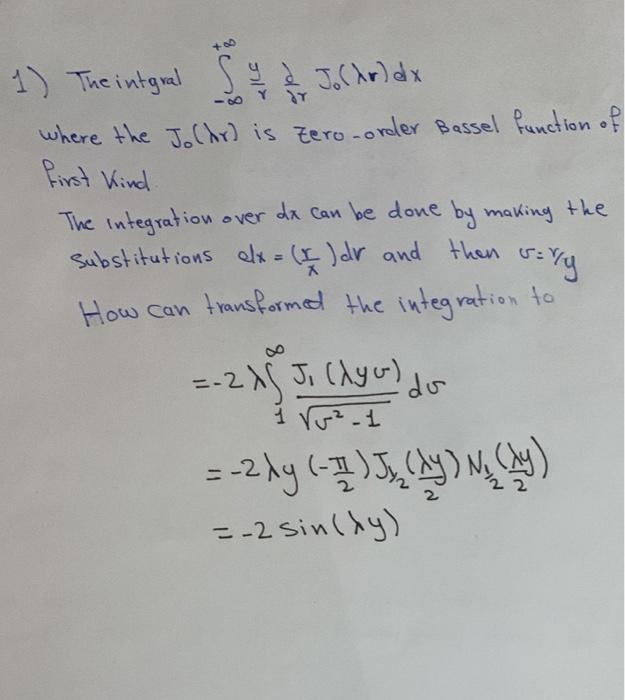 1) The intgral ∫_{-∞}^{+∞} y/r ∂/∂r J₀(λr) dx
where the J₀(λr) is Zero-order Bassel function of
first Kind.
The integration over dx can be done by making the
Substitutions dx = (r/x) dr and then v = r/y
How can transformed the integration to
= -2λ ∫_1^∞ J₁(λyv) / √(v² - 1) dv
= -2λy (-π/2) J_{1/2}(λy/2) N_{1/2}(λy/2)
= -2 sin(λy)